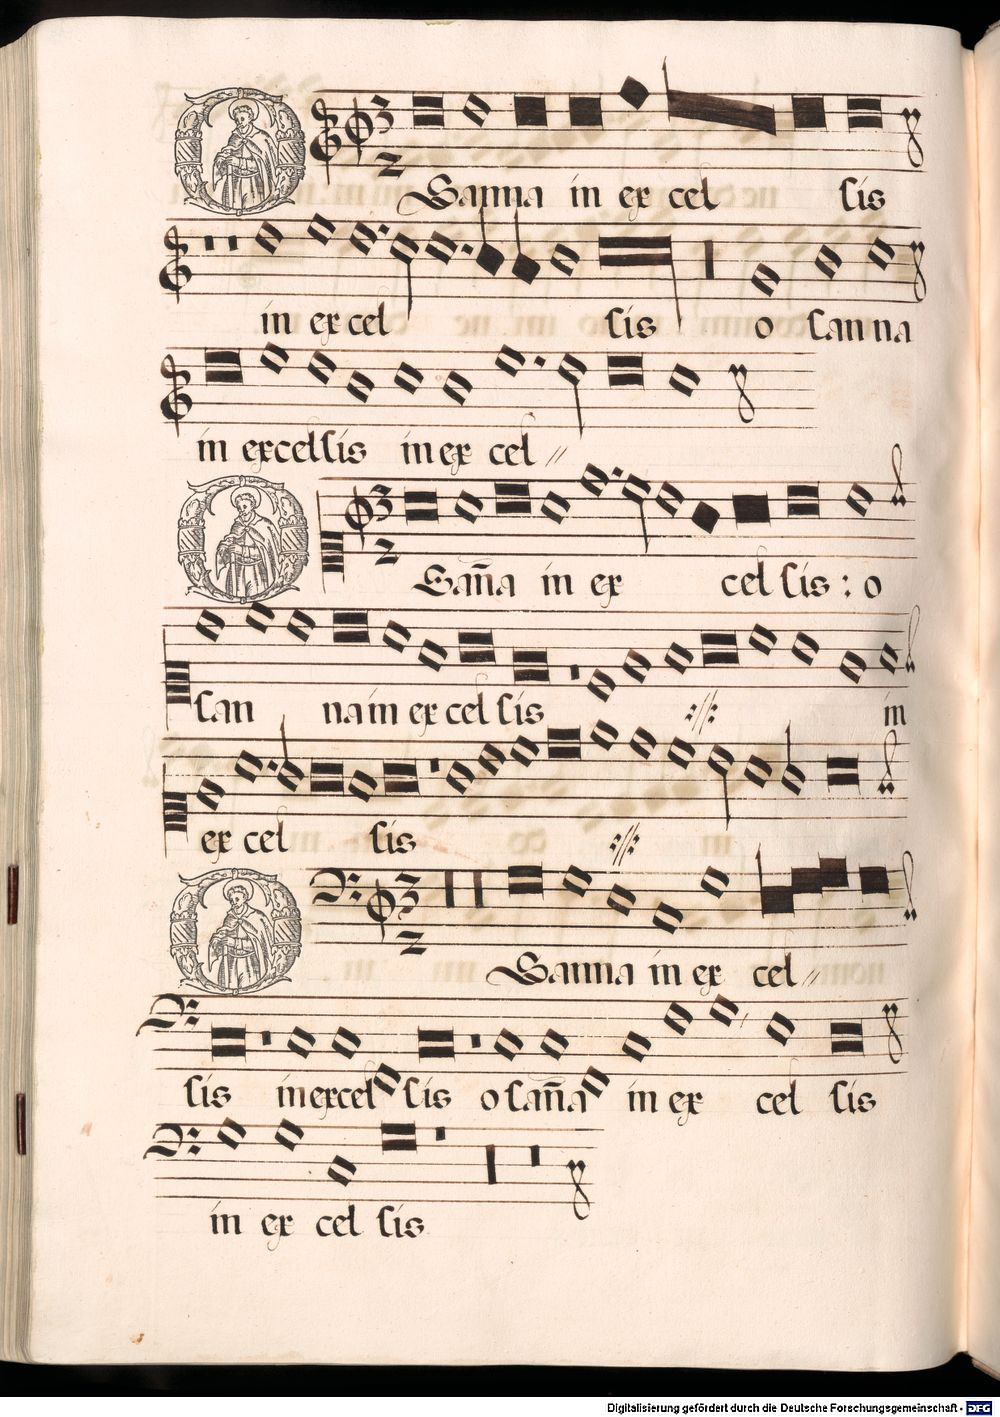 OSanna in ex cel sis
in ex cel sis o san na
in excelsis in ex cel //
OSan̄a in ex cel sis : o
san na in ex cel sis ://: in
ex cel sis ://:
OSanna in ex cel //
sis in excel sis o san̄a in ex cel sis
in ex cel sis
Digitalisierung gefördert durch die Deutsche Forschungsgemeinschaft - DFG